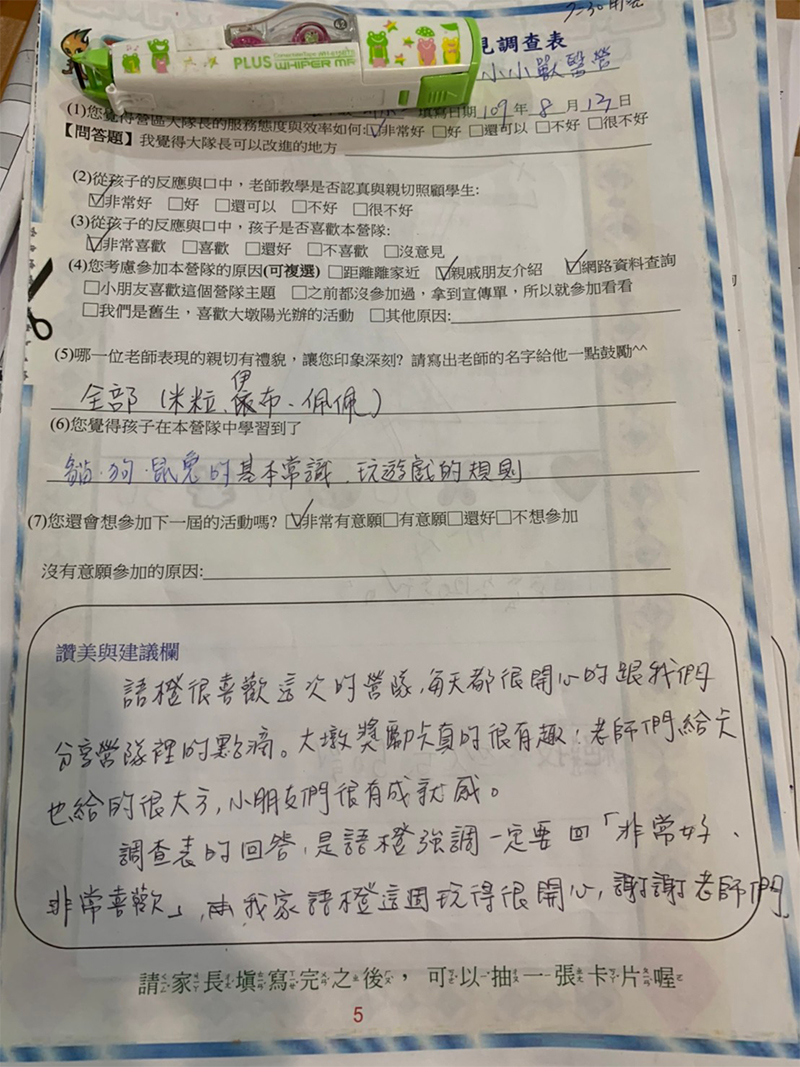 PLUS WHIPER MR
見調查表
小小獸醫營
填寫日期 109 年 8 月 13 日
(1)您覺得營區大隊長的服務態度與效率如何:☑非常好 □好 □還可以 □不好 □很不好
【問答題】我覺得大隊長可以改進的地方
(2)從孩子的反應與口中，老師教學是否認真與親切照顧學生:
☑非常好 □好 □還可以 □不好 □很不好
(3)從孩子的反應與口中，孩子是否喜歡本營隊:
☑非常喜歡 □喜歡 □還好 □不喜歡 □沒意見
(4)您考慮參加本營隊的原因(可複選) □距離離家近 ☑親戚朋友介紹 ☑網路資料查詢
□小朋友喜歡這個營隊主題 □之前都沒參加過，拿到宣傳單，所以就參加看看
□我們是舊生，喜歡大墩陽光辦的活動 □其他原因:
(5)哪一位老師表現的親切有禮貌，讓您印象深刻? 請寫出老師的名字給他一點鼓勵^^
全部（米粒、伊布、佩佩）
(6)您覺得孩子在本營隊中學習到了
貓、狗、鼠兔的基本常識、玩遊戲的規則
(7)您還會想參加下一屆的活動嗎? ☑非常有意願□有意願□還好□不想參加
沒有意願參加的原因:
讚美與建議欄
語橙很喜歡這次的營隊,每天都很開心的跟我們
分享營隊裡的點滴。大墩獎勵卡真的很有趣!老師們給卡
也給的很大方,小朋友們很有成就感。
調查表的回答,是語橙強調一定要回「非常好、
非常喜歡」,我家語橙這週玩得很開心,謝謝老師們
請家長填寫完之後，可以抽一張卡片喔
5